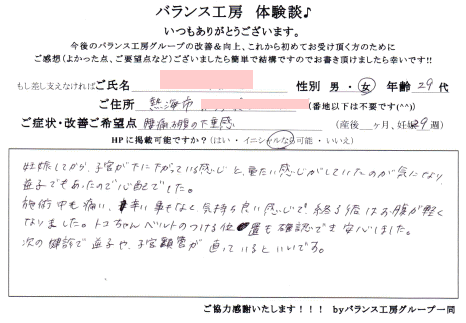 バランス工房 体験談♪
いつもありがとうございます。
今後のバランス工房グループの改善&向上、これから初めてお受け頂く方のために
ご感想(よかった点、ご要望点など)ございましたら簡単で結構ですのでお書き頂けましたら幸いです!!
もし差し支えなければご氏名 性別 男・女 年齢 29 代
ご住所 熱海市 (番地以下は不要です(^^))
ご症状・改善ご希望点 腰痛 お腹の下垂感 (産後 ヶ月、妊娠29週)
HPに掲載可能ですか?(はい・イニシャルなら可能・いいえ)
妊娠してから、子宮が下に下がっている感じと、重たい感じがしていたのが気になり
逆子でもあったので心配でした。
施術中も痛い、辛い事もなく気持ち良い感じで、終る頃はお腹が軽く
なりました。トコちゃんベルトのつける位置も確認でき安心しました。
次の健診で逆子や、子宮頸管が直っているといいです。
ご協力感謝いたします!!! byバランス工房グループ一同